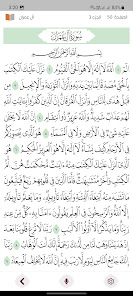 3:20
الصفحة 50 الجزء 3 آل عمران
سُورَةُ آلِ عِمْرَانَ
بِسْمِ ٱللَّهِ ٱلرَّحْمَٰنِ ٱلرَّحِيمِ
الٓمٓ ١ ٱللَّهُ لَآ إِلَٰهَ إِلَّا هُوَ ٱلْحَىُّ ٱلْقَيُّومُ ٢ نَزَّلَ عَلَيْكَ ٱلْكِتَٰبَ
بِٱلْحَقِّ مُصَدِّقًا لِّمَا بَيْنَ يَدَيْهِ وَأَنزَلَ ٱلتَّوْرَىٰةَ وَٱلْإِنجِيلَ ٣
مِن قَبْلُ هُدًى لِّلنَّاسِ وَأَنزَلَ ٱلْفُرْقَانَ إِنَّ ٱلَّذِينَ كَفَرُوا۟ بِـَٔايَٰتِ ٱللَّهِ
لَهُمْ عَذَابٌ شَدِيدٌ وَٱللَّهُ عَزِيزٌ ذُو ٱنتِقَامٍ ٤ إِنَّ ٱللَّهَ لَا يَخْفَىٰ عَلَيْهِ
شَىْءٌ فِى ٱلْأَرْضِ وَلَا فِى ٱلسَّمَآءِ ٥ هُوَ ٱلَّذِى يُصَوِّرُكُمْ
فِى ٱلْأَرْحَامِ كَيْفَ يَشَآءُ لَآ إِلَٰهَ إِلَّا هُوَ ٱلْعَزِيزُ ٱلْحَكِيمُ ٦
هُوَ ٱلَّذِىٓ أَنزَلَ عَلَيْكَ ٱلْكِتَٰبَ مِنْهُ ءَايَٰتٌ مُّحْكَمَٰتٌ هُنَّ أُمُّ ٱلْكِتَٰبِ
وَأُخَرُ مُتَشَٰبِهَٰتٌ فَأَمَّا ٱلَّذِينَ فِى قُلُوبِهِمْ زَيْغٌ فَيَتَّبِعُونَ مَا تَشَٰبَهَ مِنْهُ
ٱبْتِغَآءَ ٱلْفِتْنَةِ وَٱبْتِغَآءَ تَأْوِيلِهِۦ وَمَا يَعْلَمُ تَأْوِيلَهُۥٓ إِلَّا ٱللَّهُ وَٱلرَّٰسِخُونَ
فِى ٱلْعِلْمِ يَقُولُونَ ءَامَنَّا بِهِۦ كُلٌّ مِّنْ عِندِ رَبِّنَا وَمَا يَذَّكَّرُ إِلَّآ
أُو۟لُوا۟ ٱلْأَلْبَٰبِ ٧ رَبَّنَا لَا تُزِغْ قُلُوبَنَا بَعْدَ إِذْ هَدَيْتَنَا
وَهَبْ لَنَا مِن لَّدُنكَ رَحْمَةً إِنَّكَ أَنتَ ٱلْوَهَّابُ ٨ رَبَّنَآ